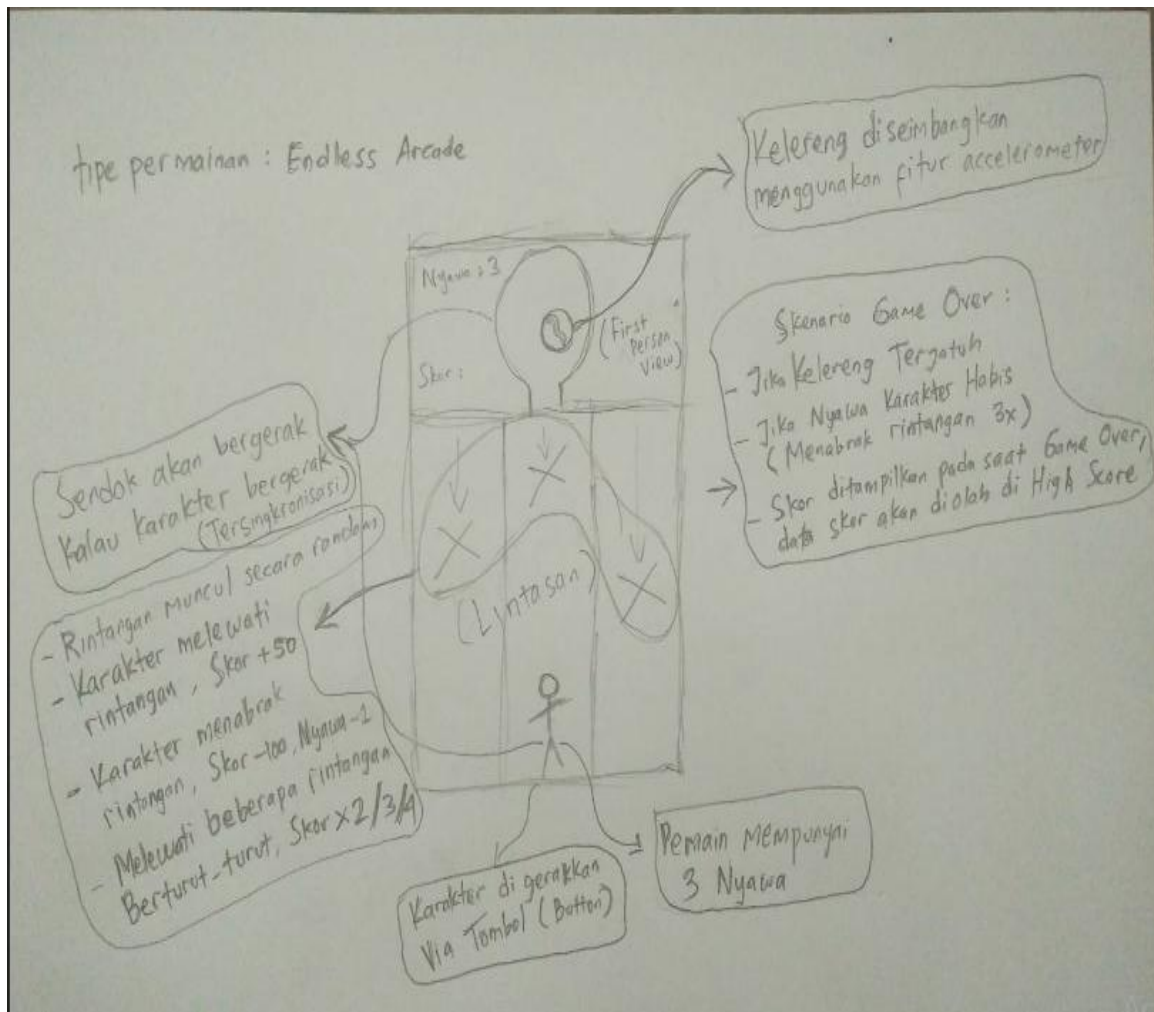 tipe permainan : Endless Arcade
Kelereng diseimbangkan
menggunakan fitur accelerometer
Nyawa : 3
Skor :
(First
Person
View)
Skenario Game Over :
- Jika Kelereng Terjatuh
- Jika Nyawa Karakter Habis
(Menabrak rintangan 3x)
- Skor ditampilkan pada saat Game Over,
data skor akan diolah di High Score
Sendok akan bergerak
kalau karakter bergerak
(Tersingkronisasi)
(Lintasan)
- Rintangan muncul secara random
- Karakter melewati
rintangan, Skor +50
- Karakter menabrak
rintangan, Skor -100, Nyawa -1
- Melewati beberapa rintangan
Berturut-turut, Skor x2/3/4
Karakter di gerakkan
Via Tombol (Button)
Pemain mempunyai
3 Nyawa